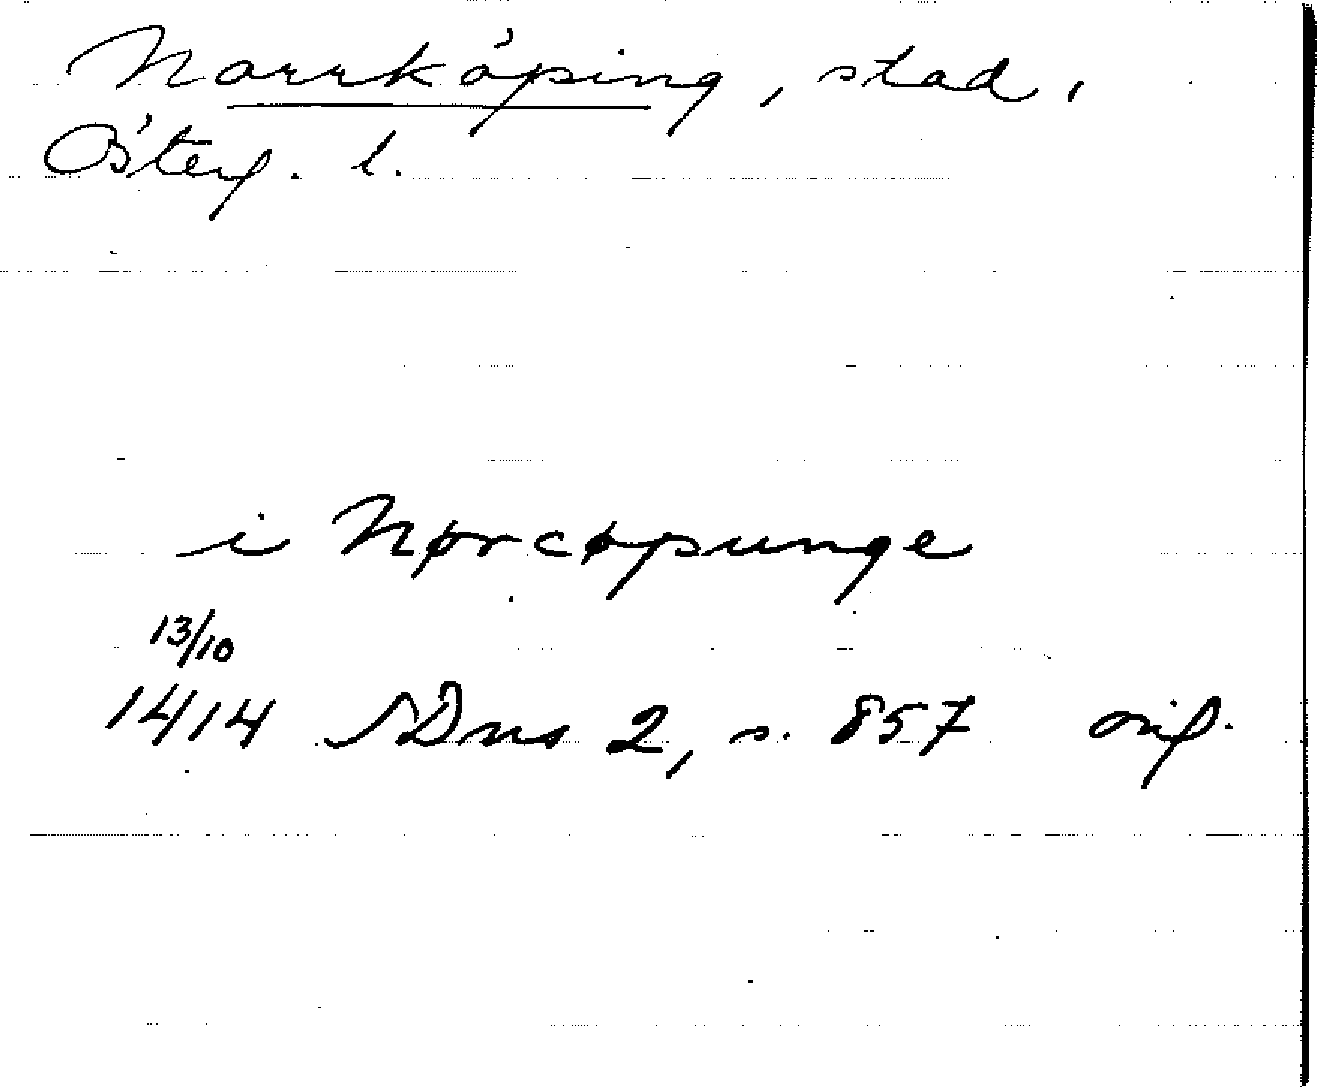 Norrköping, stad,
Österg. l.
i Nørcøpunge
13/10
1414 SDns 2, s. 857 orig.